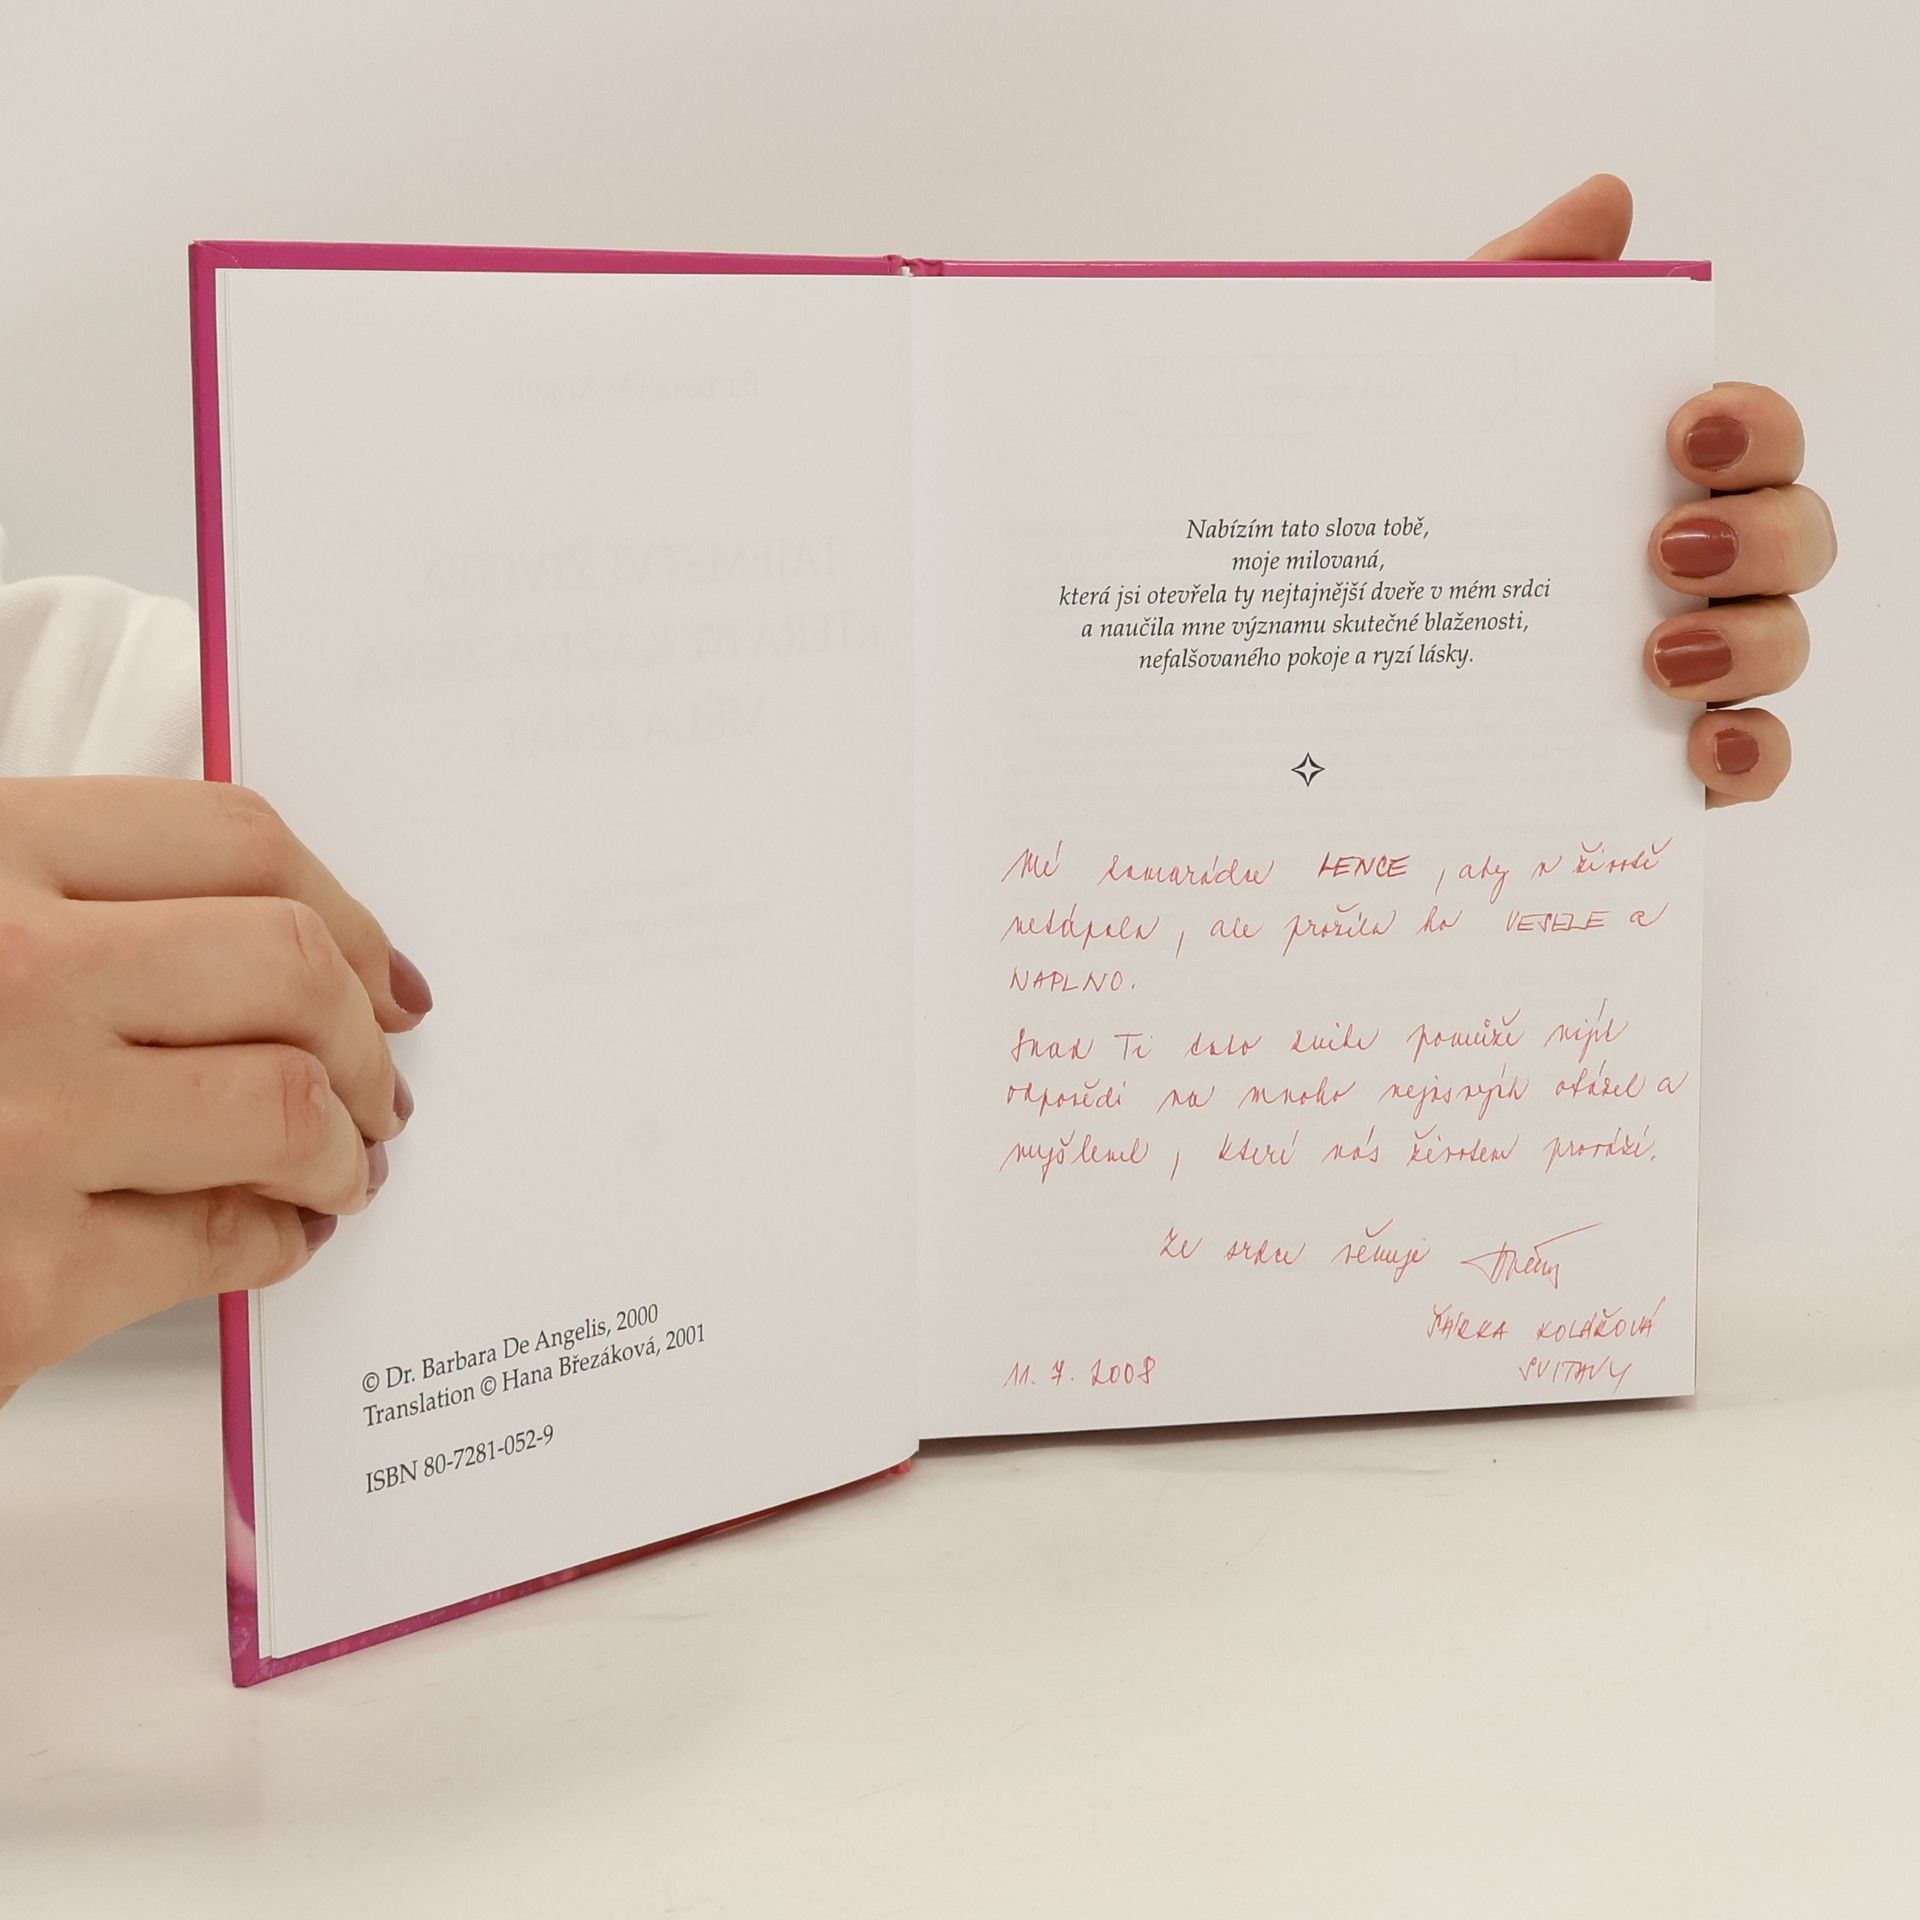 © Dr. Barbara De Angelis, 2000
Translation © Hana Březáková, 2001
ISBN 80-7281-052-9
Nabízím tato slova tobě,
moje milovaná,
která jsi otevřela ty nejtajnější dveře v mém srdci
a naučila mne významu skutečné blaženosti,
nefalšovaného pokoje a ryzí lásky.
Mé kamarádce LENCE, aby v životě
netápala, ale prožila ho VESELE a
NAPLNO.
Snad Ti tato kniha pomůže najít
odpovědi na mnoho nejasných otázek a
myšlenek, které nás životem provází.
Ze srdce věnuje
ŠÁRKA KOLÁŘOVÁ
SVITAVY
11. 7. 2008